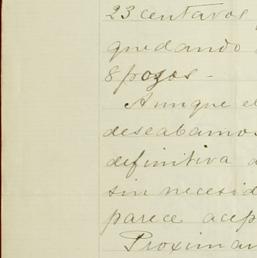 23 centavos
quedando
8 pozos -
Aunque el
deseabamos
definitiva a
sin necesid
parece acep
Proximan